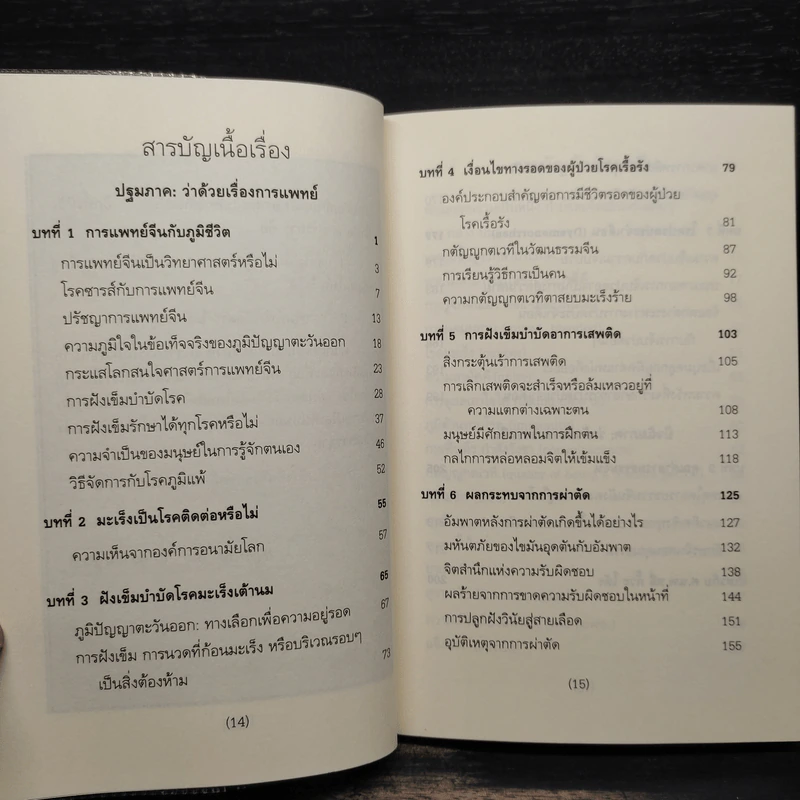 สารบัญเนื้อเรื่อง
ปฐมภาค: ว่าด้วยเรื่องการแพทย์
บทที่ 1 การแพทย์จีนกับภูมิชีวิต 1
การแพทย์จีนเป็นวิทยาศาสตร์หรือไม่ 3
โรคซารส์กับการแพทย์จีน 7
ปรัชญาการแพทย์จีน 13
ความภูมิใจในข้อเท็จจริงของภูมิปัญญาตะวันออก 18
กระแสโลกสนใจศาสตร์การแพทย์จีน 23
การฝังเข็มบำบัดโรค 28
การฝังเข็มรักษาได้ทุกโรคหรือไม่ 37
ความจำเป็นของมนุษย์ในการรู้จักตนเอง 46
วิธีจัดการกับโรคภูมิแพ้ 52
บทที่ 2 มะเร็งเป็นโรคติดต่อหรือไม่ 55
ความเห็นจากองค์การอนามัยโลก 57
บทที่ 3 ฝังเข็มบำบัดโรคมะเร็งเต้านม 65
ภูมิปัญญาตะวันออก: ทางเลือกเพื่อความอยู่รอด 67
การฝังเข็ม การนวดที่ก้อนมะเร็ง หรือบริเวณรอบๆ 73
เป็นสิ่งต้องห้าม
(14)
บทที่ 4 เงื่อนไขทางรอดของผู้ป่วยโรคเรื้อรัง 79
องค์ประกอบสำคัญต่อการมีชีวิตรอดของผู้ป่วย
โรคเรื้อรัง 81
กตัญญูกตเวทีในวัฒนธรรมจีน 87
การเรียนรู้วิธีการเป็นคน 92
ความกตัญญูกตเวทิตาสยบมะเร็งร้าย 98
บทที่ 5 การฝังเข็มบำบัดอาการเสพติด 103
สิ่งกระตุ้นเร้าการเสพติด 105
การเลิกเสพติดจะสำเร็จหรือล้มเหลวอยู่ที่
ความแตกต่างเฉพาะตน 108
มนุษย์มีศักยภาพในการฝึกตน 113
กลไกการหล่อหลอมจิตให้เข้มแข็ง 118
บทที่ 6 ผลกระทบจากการผ่าตัด 125
อัมพาตหลังการผ่าตัดเกิดขึ้นได้อย่างไร 127
มหันตภัยของไขมันอุดตันกับอัมพาต 132
จิตสำนึกแห่งความรับผิดชอบ 138
ผลร้ายจากการขาดความรับผิดชอบในหน้าที่ 144
การปลูกฝังวินัยสู่สายเลือด 151
อุบัติเหตุจากการผ่าตัด 155
(15)